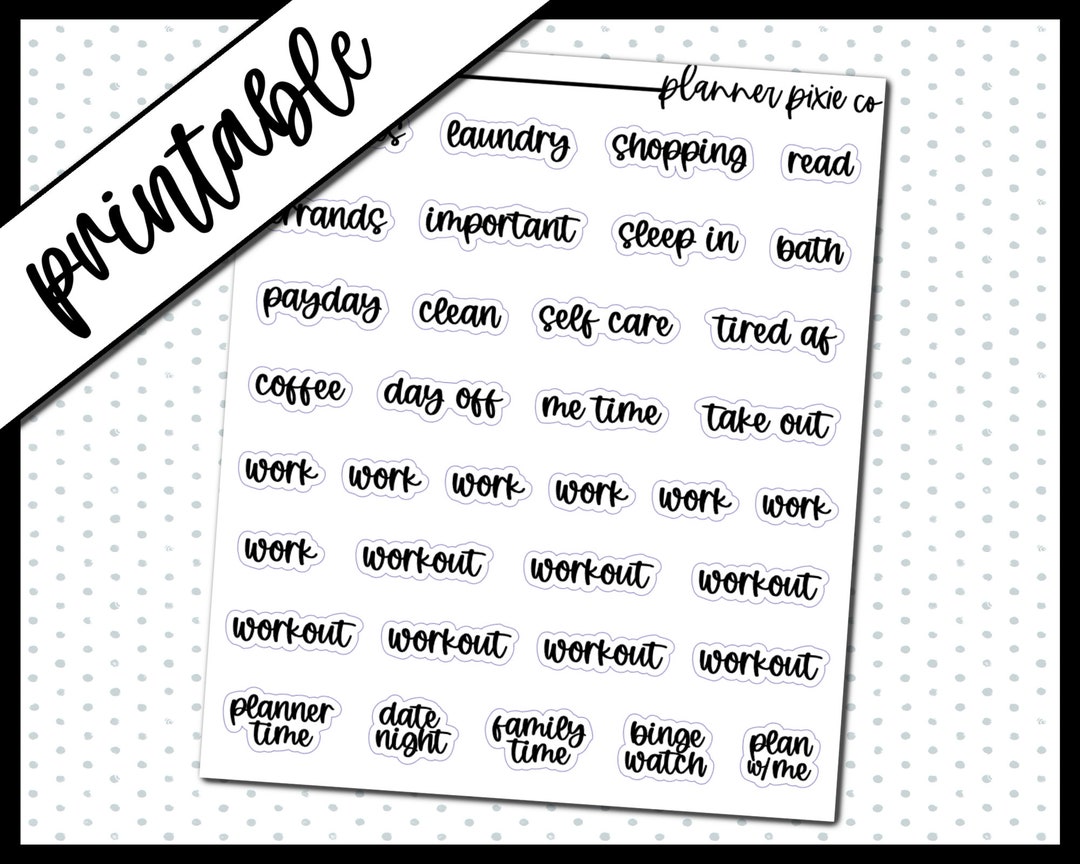 printable
planner pixie co
laundry shopping read
errands important sleep in bath
payday clean self care tired af
coffee day off me time take out
work work work work work work
work workout workout workout
workout workout workout workout
planner date family binge plan
time night time watch w/me